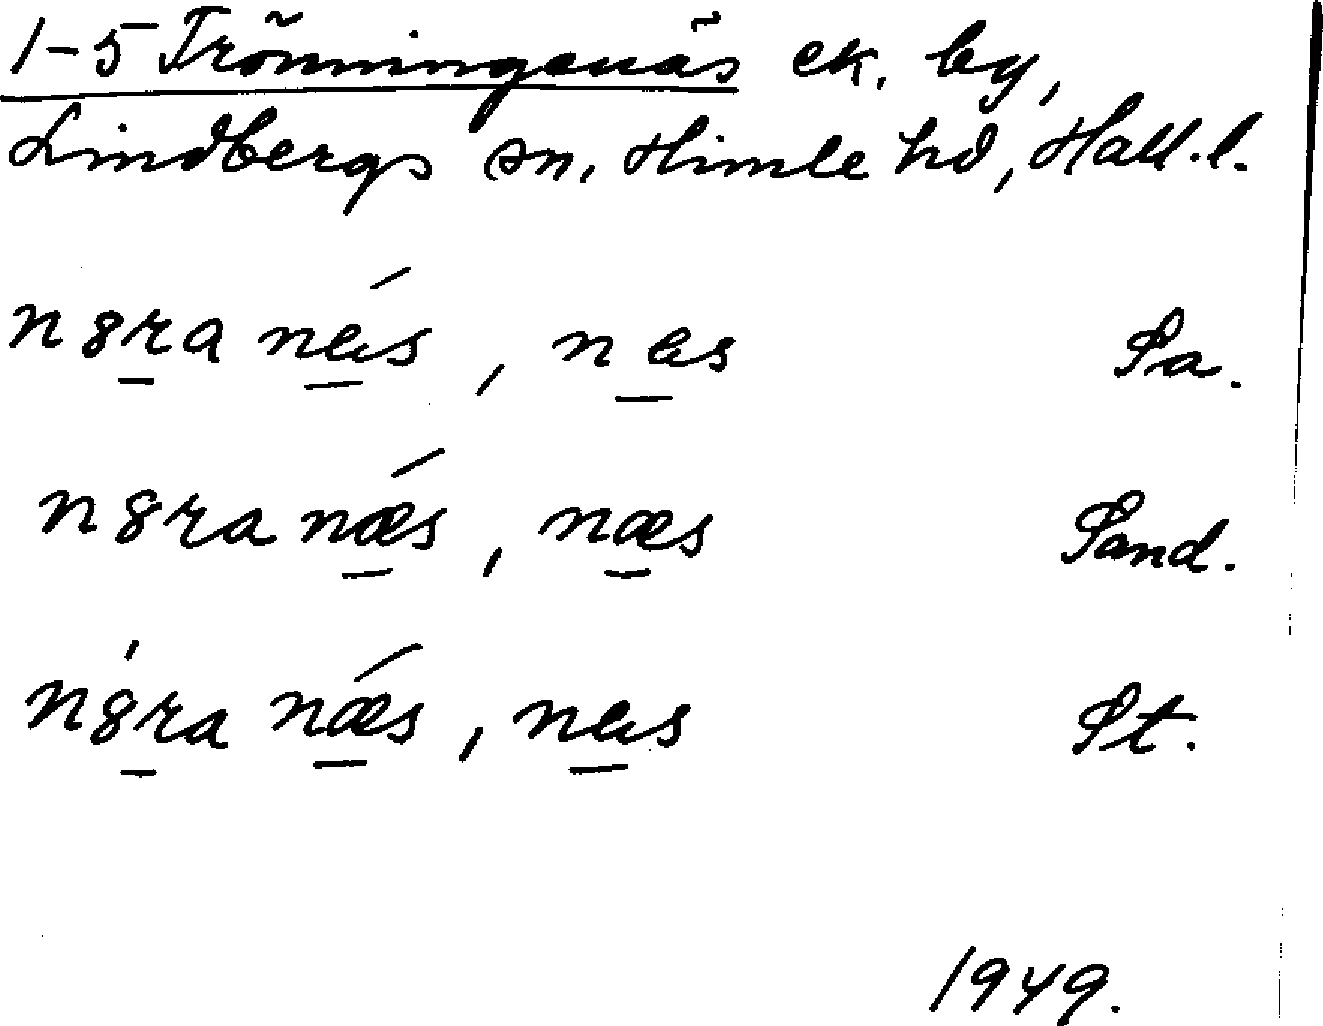 1-5 Trönningenäs ek. by,
Lindbergs sn, Himle hd, Hall. l.
nɞranǽs, næs Sa.
nɞranǽs, næs Sand.
nɞ́ranǽs, næs St.
1949.